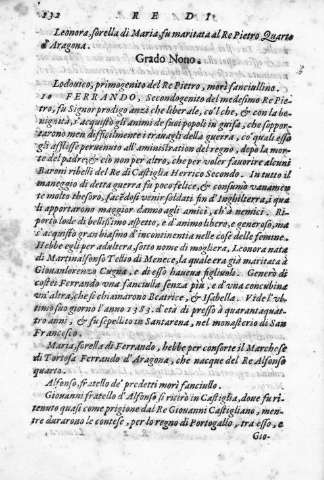 232 RE DI
Leonora, sorella di Maria, fu maritata al Re Pietro Quarto
d'Aragona.
Grado Nono.
Lodovico, primogenito del Re Pietro, morì fanciullino.
10 FERRANDO, Secondogenito del medesimo Re Pie-
tro, fu Signor prodigo anzi che liberale, co'l che, & con la be-
nignità, s'acquistò gli animi de suoi popoli in guisa, che soppor-
tarono men difficilmente i travagli della guerra, co' quali esso
gli afflisse pervenuto all'aministration del regno, dopo la mor-
te del padre, & ciò non per altro, che per voler favorire alcuni
Baroni ribelli del Re di Castiglia Herrico Secondo. In tutto il
maneggio di detta guerra fu poco felice, & consumò vanamen
te molto thesoro, facēdosi venir soldati fin d'Inghilterra, i qua
li apportarono maggior danno agli amici, ch'à nemici. Ri-
portò lode di bellissimo aspetto, e d'animo libero, e generoso, ma
s'acquistò gran biasmo d'incontinentia nelle cose delle femine.
Hebbe egli per adultera, sotto nome di mogliera, Leonora nata
di Martinalfonso Tellio di Menece, la quale era già maritata à
Giouanlorenzo Cugna, e di esso haueua figliuolo. Generò di
costei Ferrando vna fanciulla senza più, e d'vna concubina
vn'altra, che si chiamarono Beatrice, & Isabella. Vide l'vl-
timo suo giorno l'anno 1383. d'età di presso à quarantaquat-
tro anni; & fu sepellito in Santarena, nel monasterio di San
Francesco.
Maria, sorella di Ferrando, hebbe per consorte il Marchese
di Tortosa Ferrando d'Aragona, che nacque del Re Alfonso
quarto.
Alfonso, fratello de' predetti morì fanciullo.
Giouanni fratello d'Alfonso si ritirò in Castiglia, doue fu ri-
tenuto quasi come prigione dal Re Giouanni Castigliano, men-
tre durarono le contese, per lo regno di Portogallo, tra esso, e
Gio-